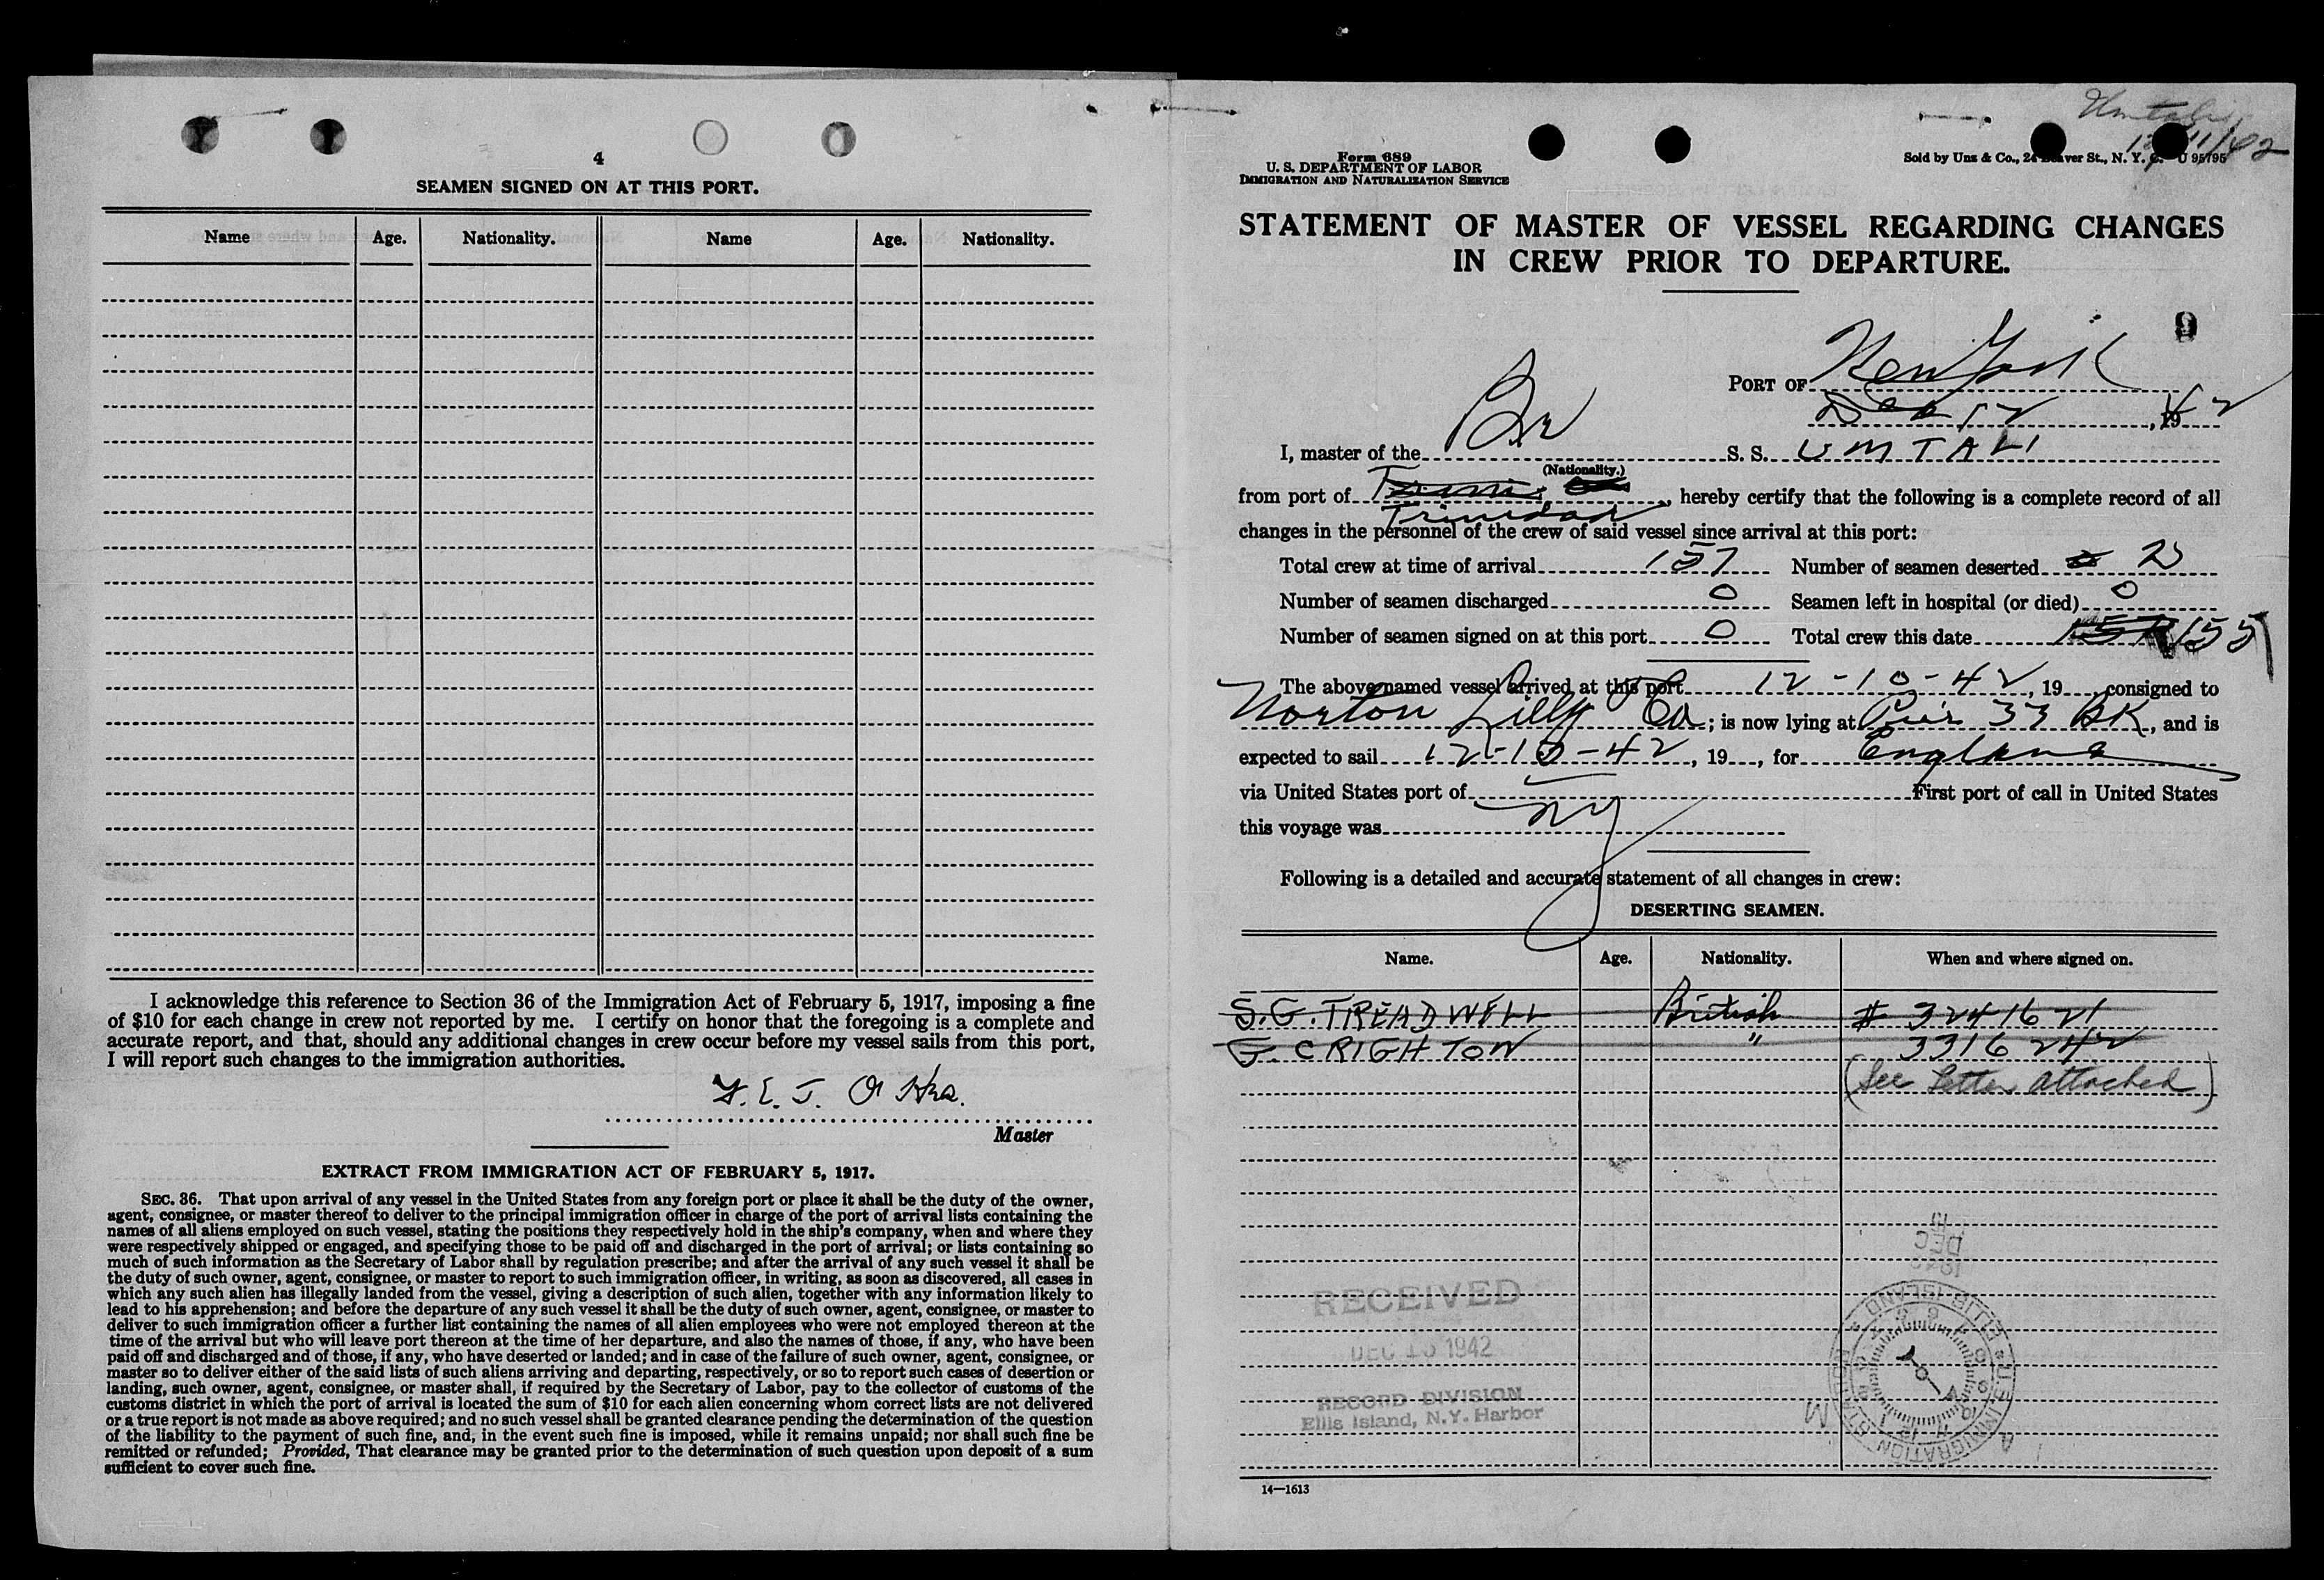 4
SEAMEN SIGNED ON AT THIS PORT.
Name Age. Nationality. Name Age. Nationality.
I acknowledge this reference to Section 36 of the Immigration Act of February 5, 1917, imposing a fine
of $10 for each change in crew not reported by me. I certify on honor that the foregoing is a complete and
accurate report, and that, should any additional changes in crew occur before my vessel sails from this port,
I will report such changes to the immigration authorities.
Master
EXTRACT FROM IMMIGRATION ACT OF FEBRUARY 5, 1917.
SEC. 36. That upon arrival of any vessel in the United States from any foreign port or place it shall be the duty of the owner,
agent, consignee, or master thereof to deliver to the principal immigration officer in charge of the port of arrival lists containing the
names of all aliens employed on such vessel, stating the positions they respectively hold in the ship's company, when and where they
were respectively shipped or engaged, and specifying those to be paid off and discharged in the port of arrival; or lists containing so
much of such information as the Secretary of Labor shall by regulation prescribe; and after the arrival of any such vessel it shall be
the duty of such owner, agent, consignee, or master to report to such immigration officer, in writing, as soon as discovered, all cases in
which any such alien has illegally landed from the vessel, giving a description of such alien, together with any information likely to
lead to his apprehension; and before the departure of any such vessel it shall be the duty of such owner, agent, consignee, or master to
deliver to such immigration officer a further list containing the names of all alien employees who were not employed thereon at the
time of the arrival but who will leave port thereon at the time of her departure, and also the names of those, if any, who have been
paid off and discharged and of those, if any, who have deserted or landed; and in case of the failure of such owner, agent, consignee, or
master so to deliver either of the said lists of such aliens arriving and departing, respectively, or so to report such cases of desertion or
landing, such owner, agent, consignee, or master shall, if required by the Secretary of Labor, pay to the collector of customs of the
customs district in which the port of arrival is located the sum of $10 for each alien concerning whom correct lists are not delivered
or a true report is not made as above required; and no such vessel shall be granted clearance pending the determination of the question
of the liability to the payment of such fine, and, in the event such fine is imposed, while it remains unpaid; nor shall such fine be
remitted or refunded; Provided, That clearance may be granted prior to the determination of such question upon deposit of a sum
sufficient to cover such fine.
Umtali
Form 689
U. S. DEPARTMENT OF LABOR
IMMIGRATION AND NATURALIZATION SERVICE
Sold by Unz & Co., 24 Beaver St., N. Y. C. U 95795
STATEMENT OF MASTER OF VESSEL REGARDING CHANGES
IN CREW PRIOR TO DEPARTURE.
9
PORT OF New York
Dec 12, 1942
I, master of the Br S. S. UMTALI
(Nationality.)
from port of Trinidad, hereby certify that the following is a complete record of all
changes in the personnel of the crew of said vessel since arrival at this port:
Total crew at time of arrival 157 Number of seamen deserted 2
Number of seamen discharged 0 Seamen left in hospital (or died) 0
Number of seamen signed on at this port 0 Total crew this date 157 155
The above-named vessel arrived at this port 12-10-42, 19 , consigned to
Norton Lilly Co; is now lying at Pier 33 BK, and is
expected to sail 12-10-42, 19 , for England
via United States port of First port of call in United States
this voyage was NY
Following is a detailed and accurate statement of all changes in crew:
DESERTING SEAMEN.
Name. Age. Nationality. When and where signed on.
S.G. TREADWELL British # 3241621
G. CRIGHTON " 3316242
(See Letter Attached)
DEC 15
RECEIVED
DEC 1942
RECORD DIVISION
Ellis Island, N.Y. Harbor
14—1613